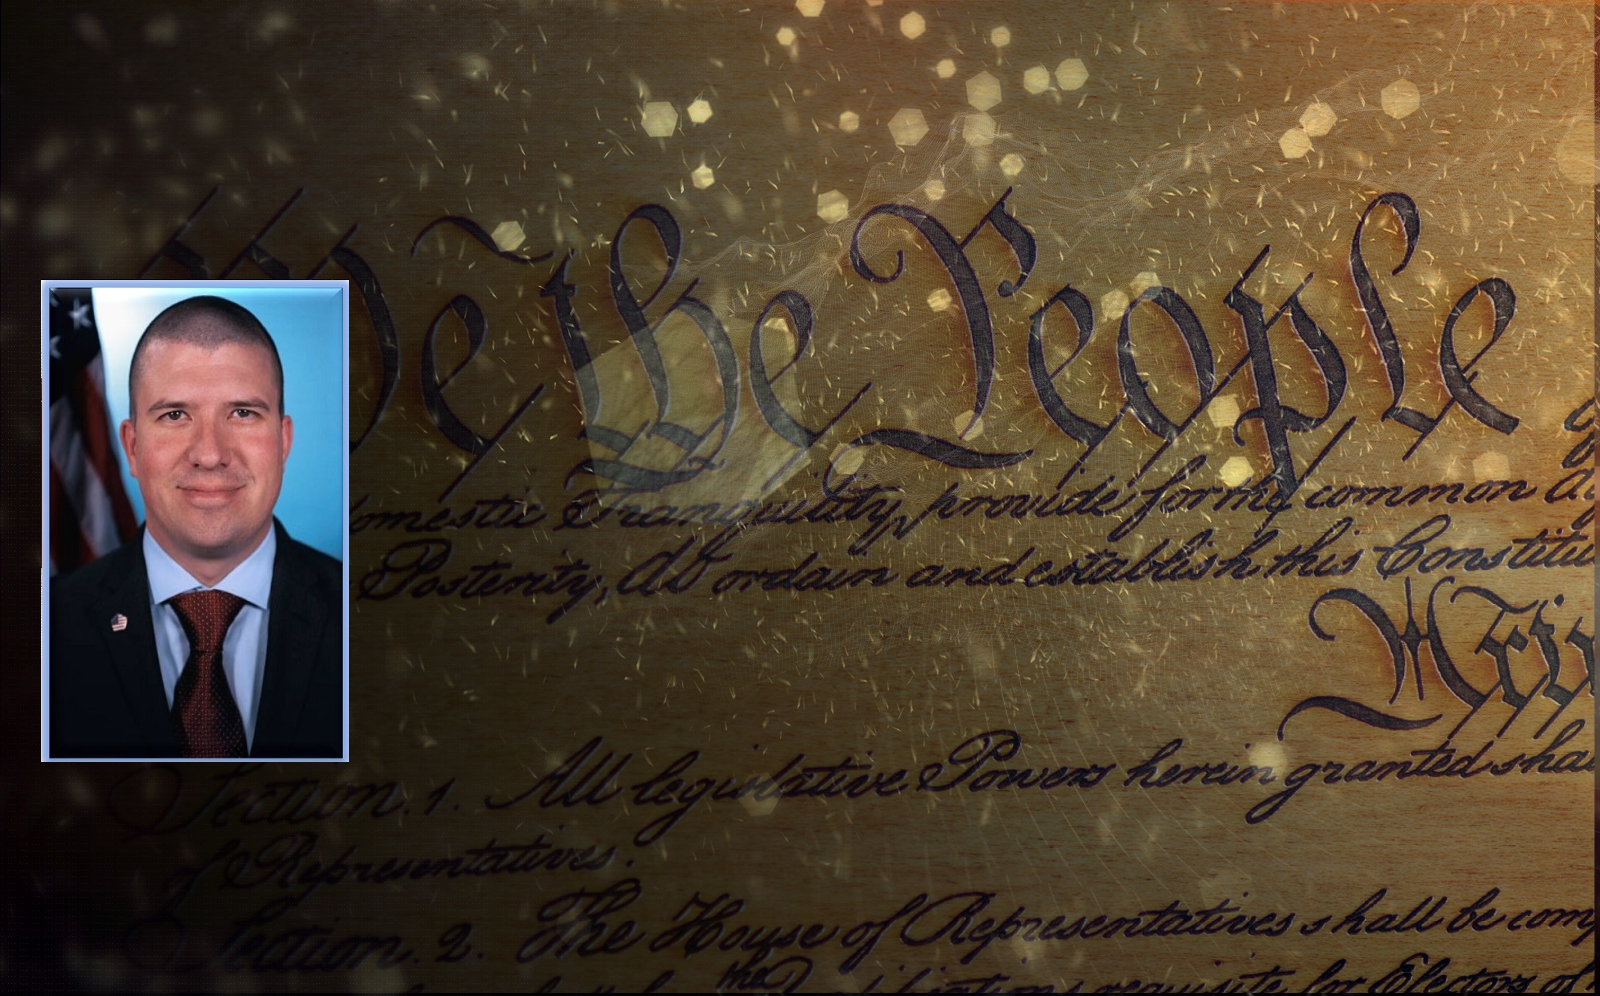 We the People
domestic Tranquility, provide for the common
Posterity, do ordain and establish this Constitu
Section. 1. All legislative Powers herein granted sha
of Representatives.
Section. 2. The House of Representatives shall be com
the Electors of